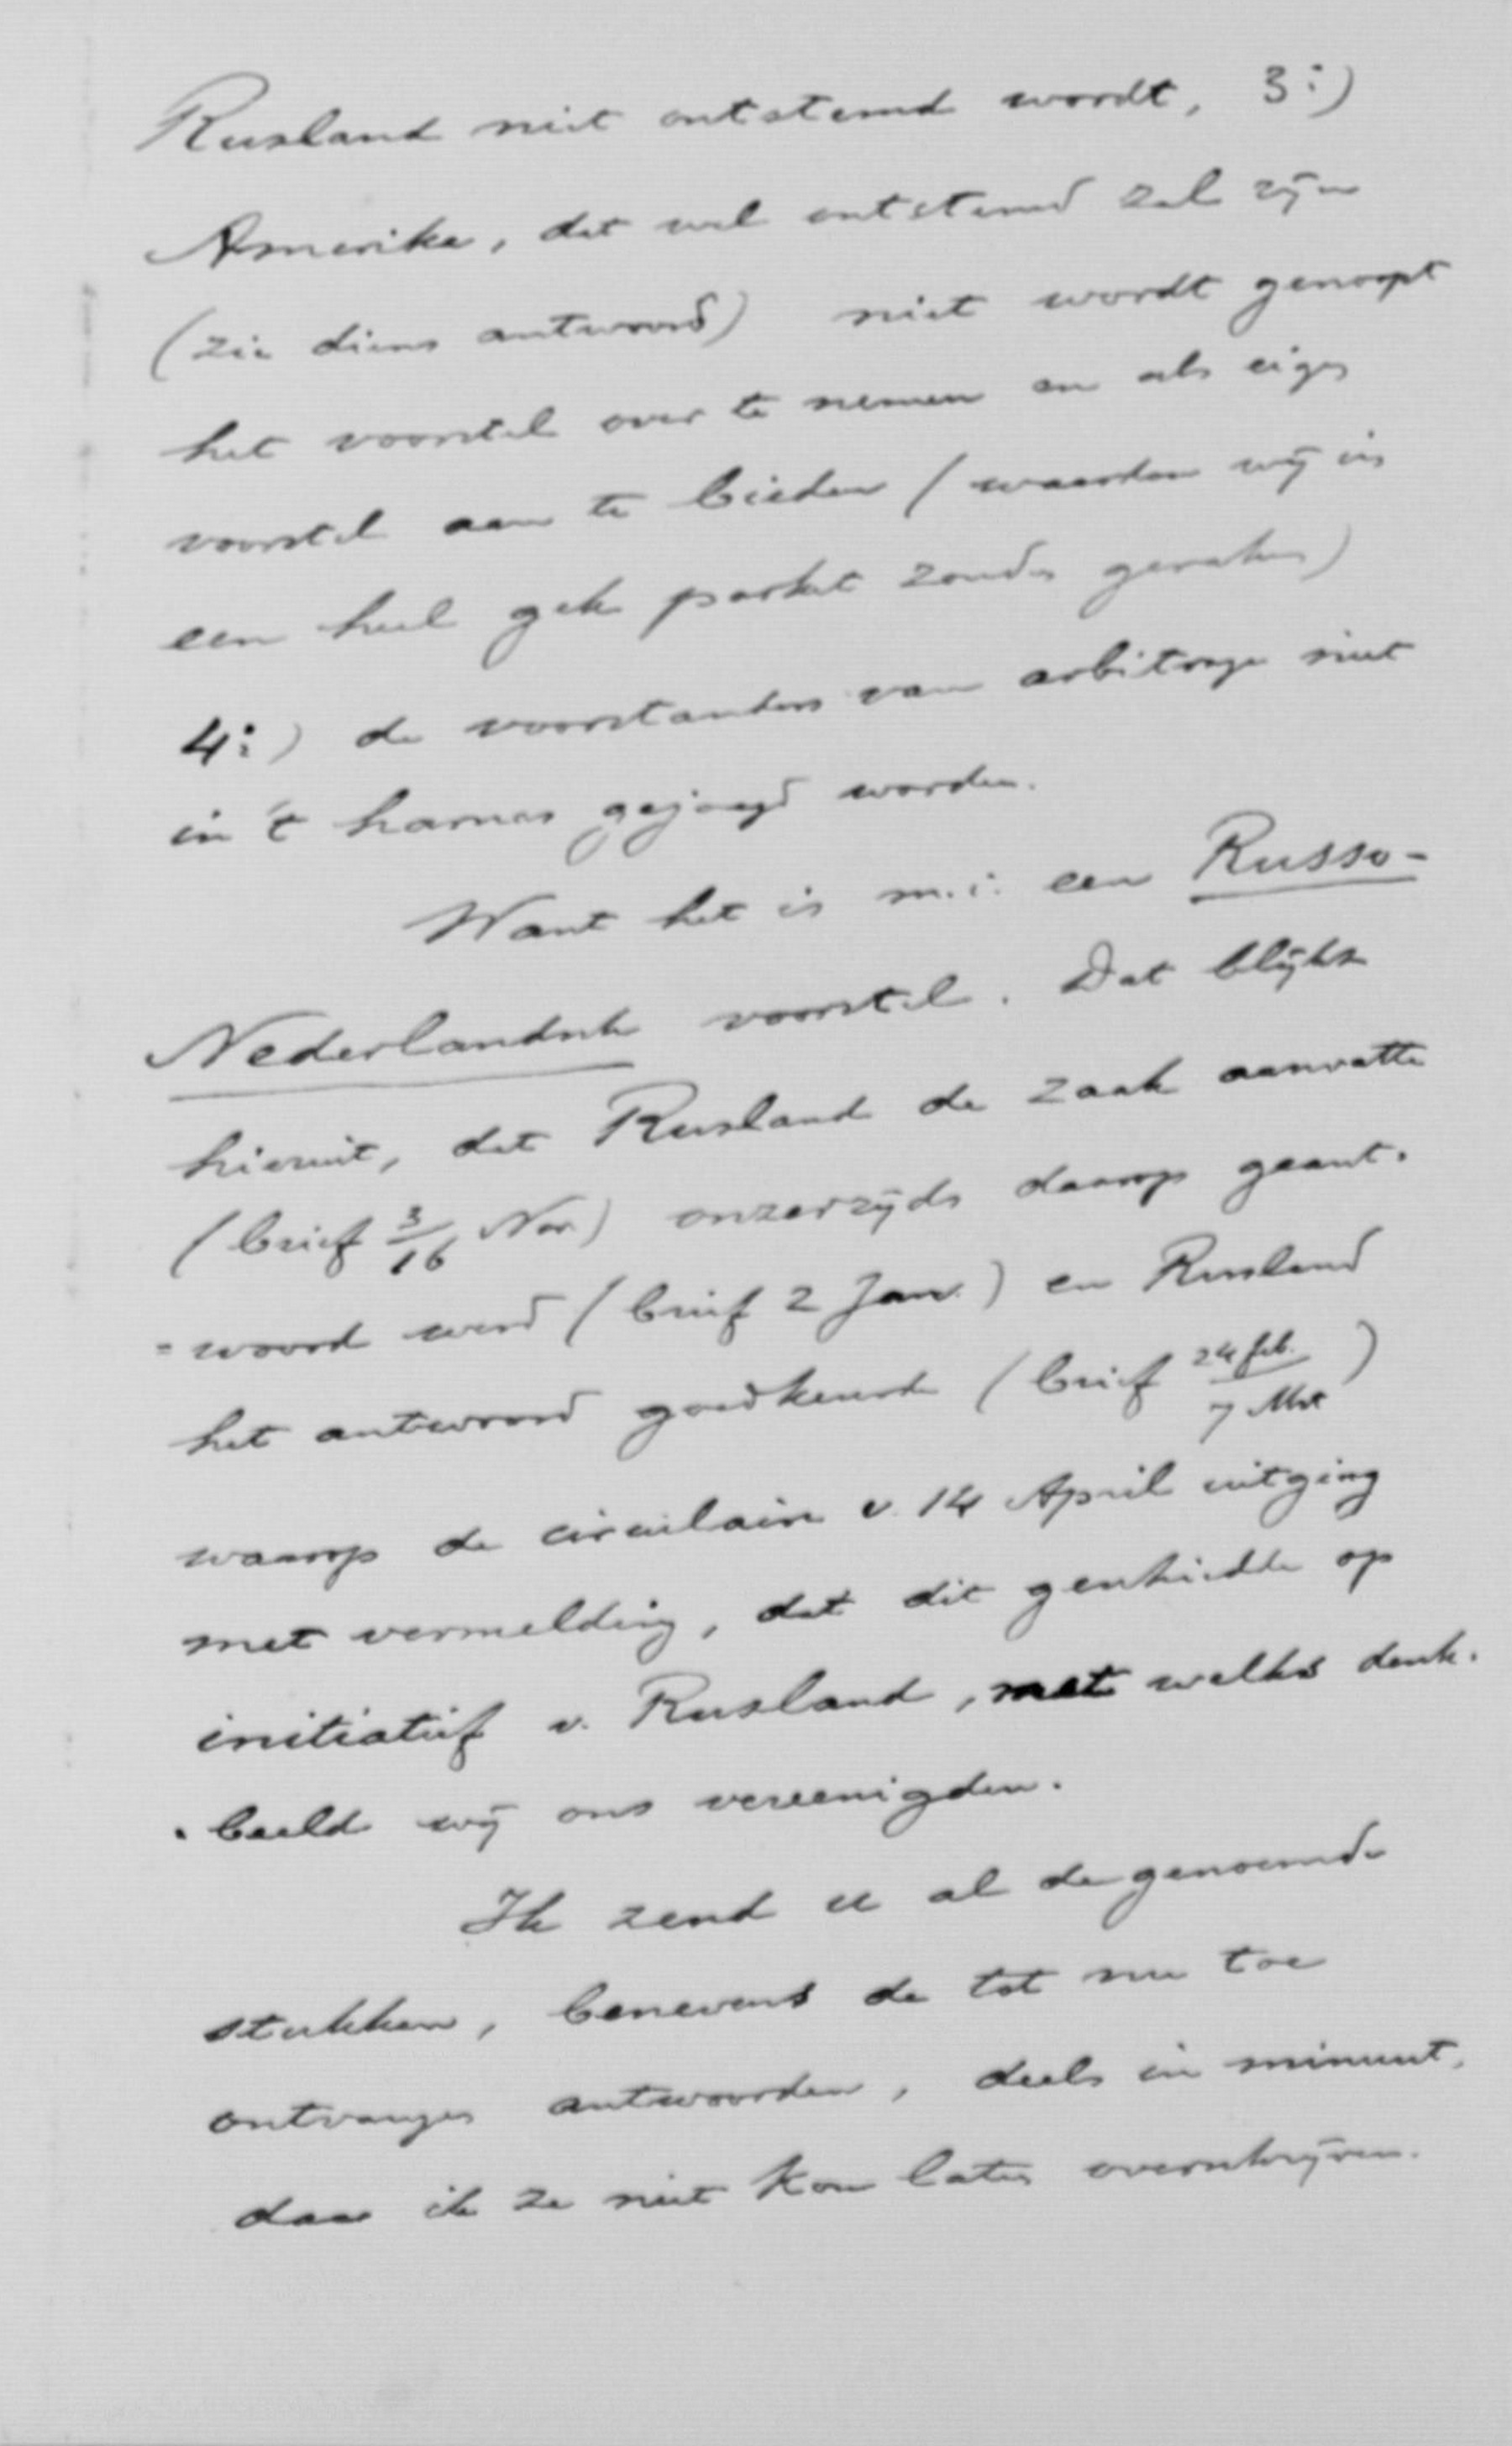 Rusland niet ontstemd wordt, 3:)
Amerika, dat wel ontstemd zal zijn
(zie diens antwoord) niet wordt genoopt
het voorstel over te nemen en als eigen
voorstel aan te bieden (waardoor wij in
een heel gek parket zouden geraken)
4:) de voorstanders van arbitrage niet
in 't harnas gejaagd worden.
Want het is m.i. een Russo-
Nederlandsch voorstel. Dat blijkt
hieruit, dat Rusland de zaak aanvatte
(brief 3/16 Nov.) onzerzijds daarop geant-
=woord werd (brief 2 Jan.) en Rusland
het antwoord goedkeurde (brief 24 feb./7 Mrt)
waarop de circulaire v. 14 April uitging
met vermelding, dat dit geschiedde op
initiatief v. Rusland, met welks denk-
-beeld wij ons vereenigden.
Ik zend u al de genoemde
stukken, benevens de tot nu toe
ontvangen antwoorden, deels in minuut,
daar ik ze niet kon laten overschrijven.